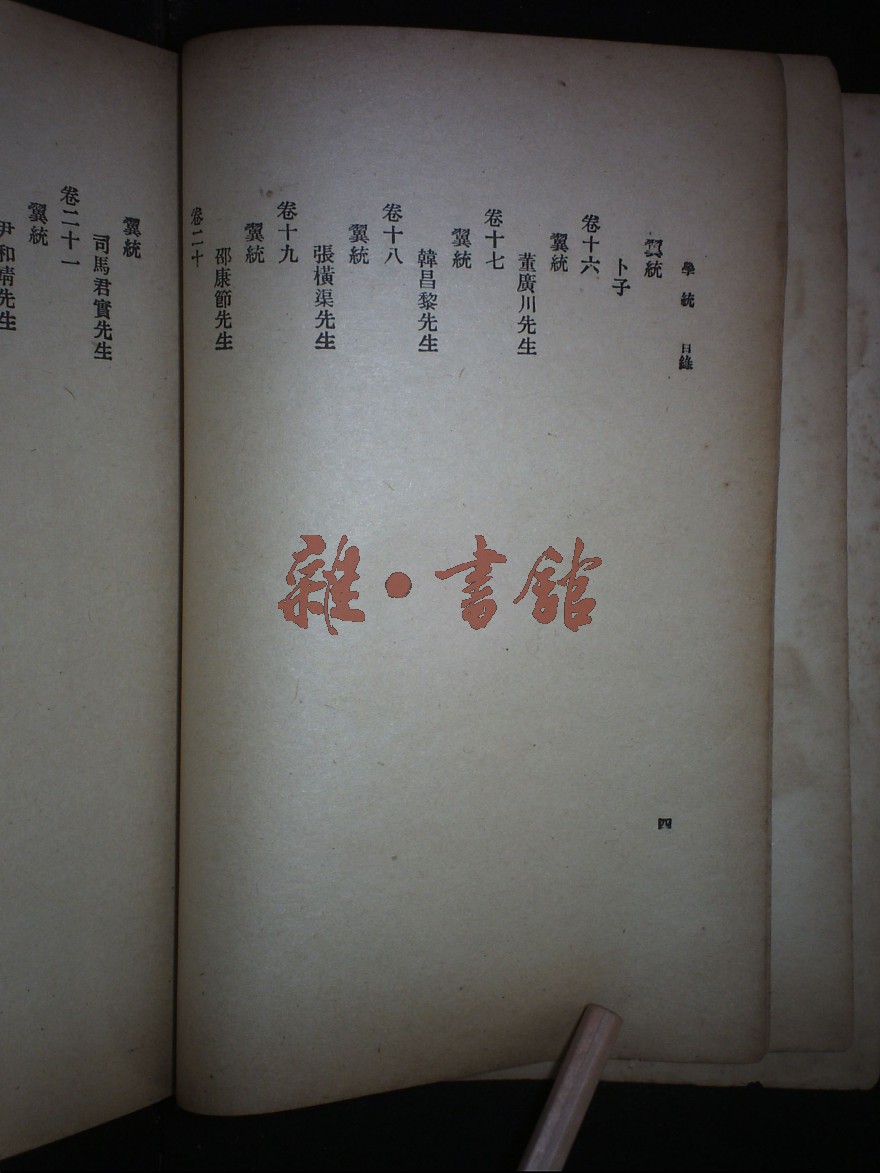 學統 目錄
四
翼統
卜子
卷十六
翼統
董廣川先生
卷十七
翼統
韓昌黎先生
卷十八
翼統
張橫渠先生
卷十九
翼統
邵康節先生
卷二十
翼統
司馬君實先生
卷二十一
翼統
尹和靖先生
雜·書館